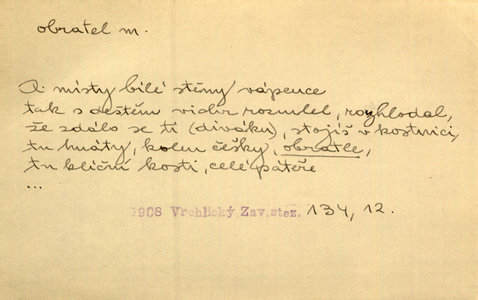 obratel m.
A místy bílé stěny vápence
tak s deštěm vichr rozmlel, rozhlodal,
že zdálo se ti (diváku), stojíš v kostnici,
tu hnáty, kolem čéšky, obratle,
tu klíční kosti, celé páteře
...
1908 Vrchlický, Zav. stez. 134, 12.